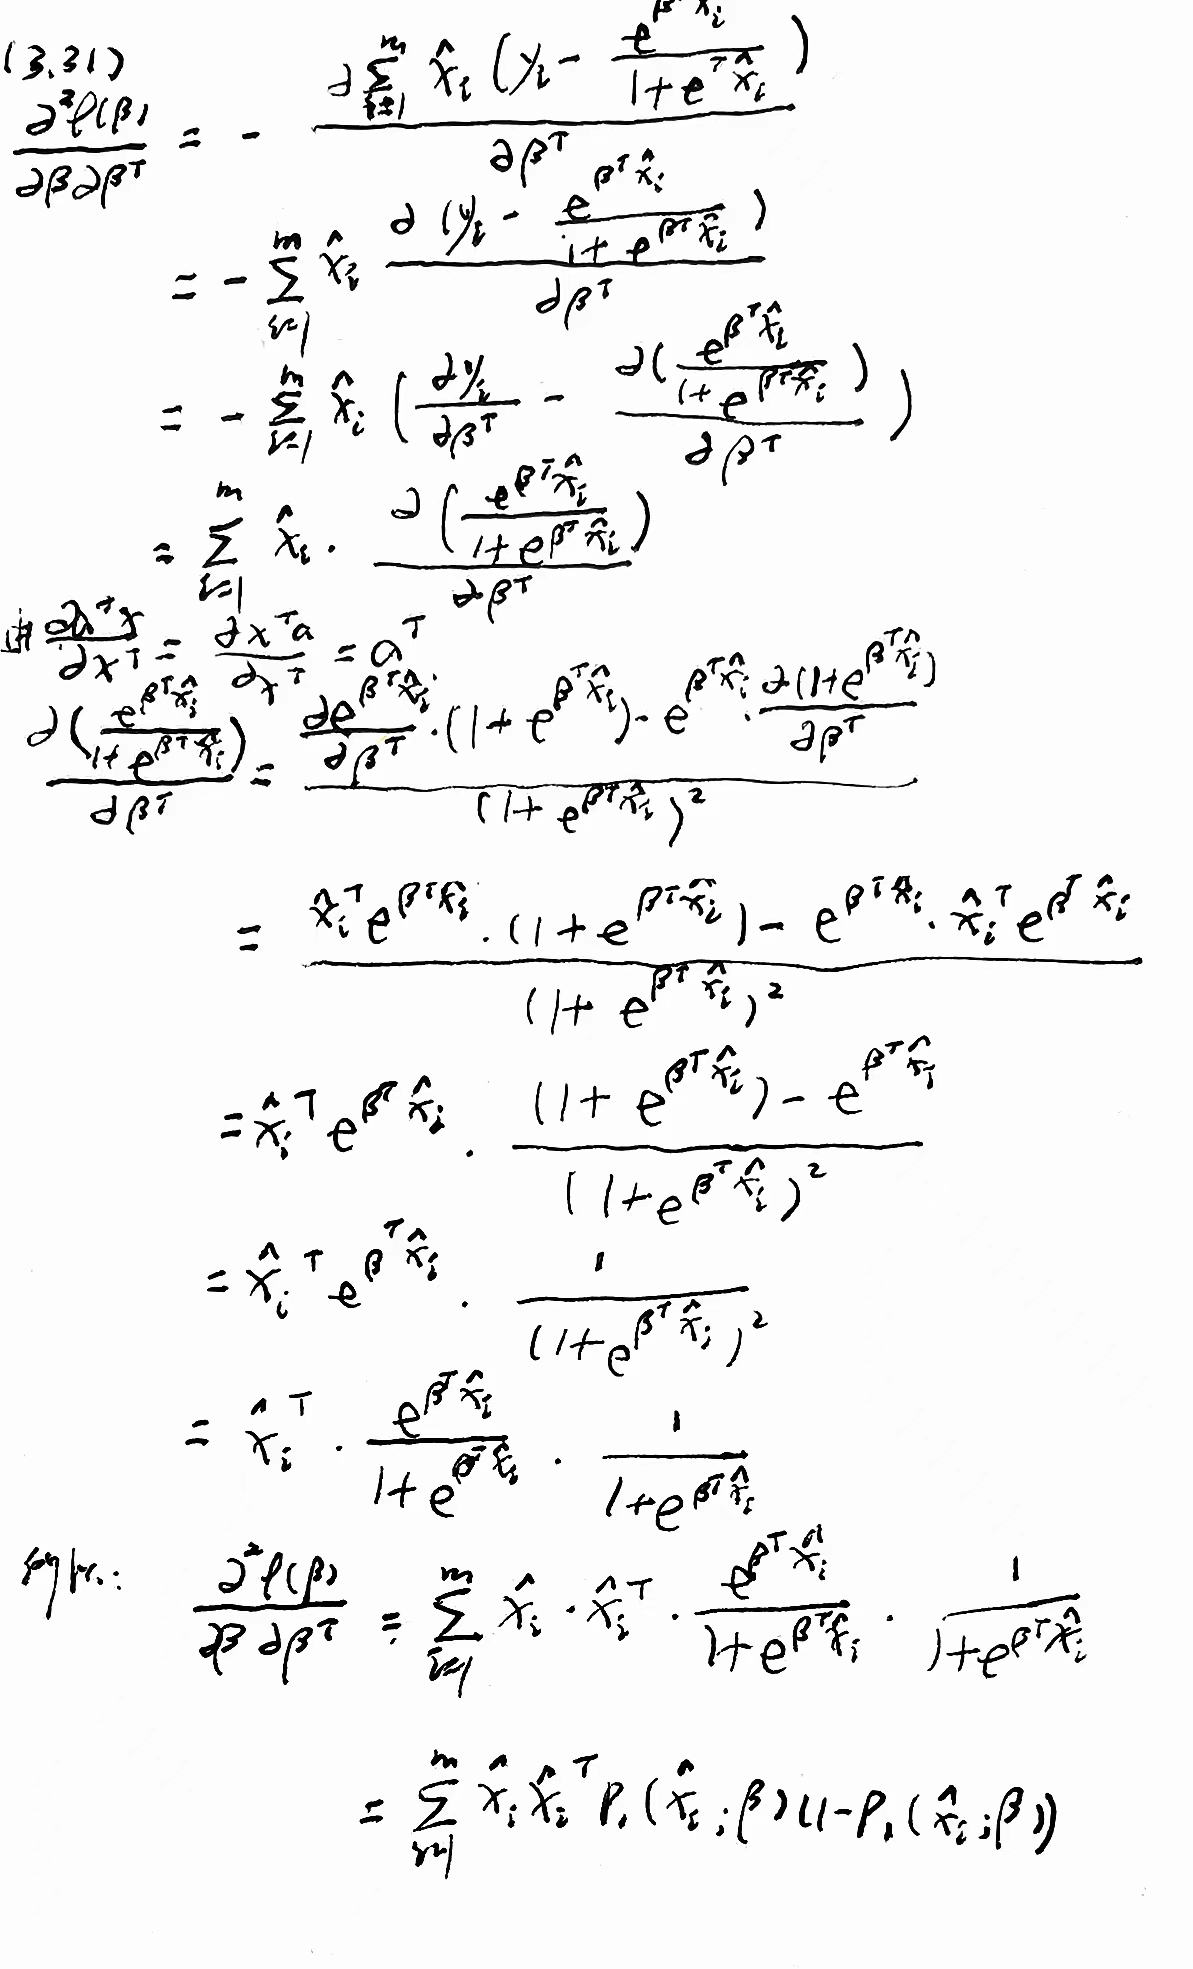 (3.31)
∂²ℓ(β)/∂β∂βᵀ = - ∂∑_{i=1}^{m} x̂ᵢ(yᵢ - e^{βᵀx̂ᵢ}/(1+e^{ᵀx̂ᵢ}))/∂βᵀ
= - ∑_{i=1}^{m} x̂ᵢ ∂(yᵢ - e^{βᵀx̂ᵢ}/(1+e^{βᵀx̂ᵢ}))/∂βᵀ
= - ∑_{i=1}^{m} x̂ᵢ (∂yᵢ/∂βᵀ - ∂(e^{βᵀx̂ᵢ}/(1+e^{βᵀx̂ᵢ}))/∂βᵀ)
= ∑_{i=1}^{m} x̂ᵢ · ∂(e^{βᵀx̂ᵢ}/(1+e^{βᵀx̂ᵢ}))/∂βᵀ
由 ∂aᵀx/∂xᵀ = ∂xᵀa/∂xᵀ = aᵀ
∂(e^{βᵀx̂ᵢ}/(1+e^{βᵀx̂ᵢ}))/∂βᵀ = (∂e^{βᵀx̂ᵢ}/∂βᵀ · (1+e^{βᵀx̂ᵢ}) - e^{βᵀx̂ᵢ} · ∂(1+e^{βᵀx̂ᵢ})/∂βᵀ)/(1+e^{βᵀx̂ᵢ})²
= (x̂ᵢᵀe^{βᵀx̂ᵢ} · (1+e^{βᵀx̂ᵢ}) - e^{βᵀx̂ᵢ} · x̂ᵢᵀe^{βᵀx̂ᵢ})/(1+e^{βᵀx̂ᵢ})²
= x̂ᵢᵀe^{βᵀx̂ᵢ} · ((1+e^{βᵀx̂ᵢ}) - e^{βᵀx̂ᵢ})/(1+e^{βᵀx̂ᵢ})²
= x̂ᵢᵀe^{βᵀx̂ᵢ} · 1/(1+e^{βᵀx̂ᵢ})²
= x̂ᵢᵀ · e^{βᵀx̂ᵢ}/(1+e^{βᵀx̂ᵢ}) · 1/(1+e^{βᵀx̂ᵢ})
∂²ℓ(β)/∂β∂βᵀ = ∑_{i=1}^{m} x̂ᵢ · x̂ᵢᵀ · e^{βᵀx̂ᵢ}/(1+e^{βᵀx̂ᵢ}) · 1/(1+e^{βᵀx̂ᵢ})
= ∑_{i=1}^{m} x̂ᵢx̂ᵢᵀ p₁(x̂ᵢ;β)(1-p₁(x̂ᵢ;β))